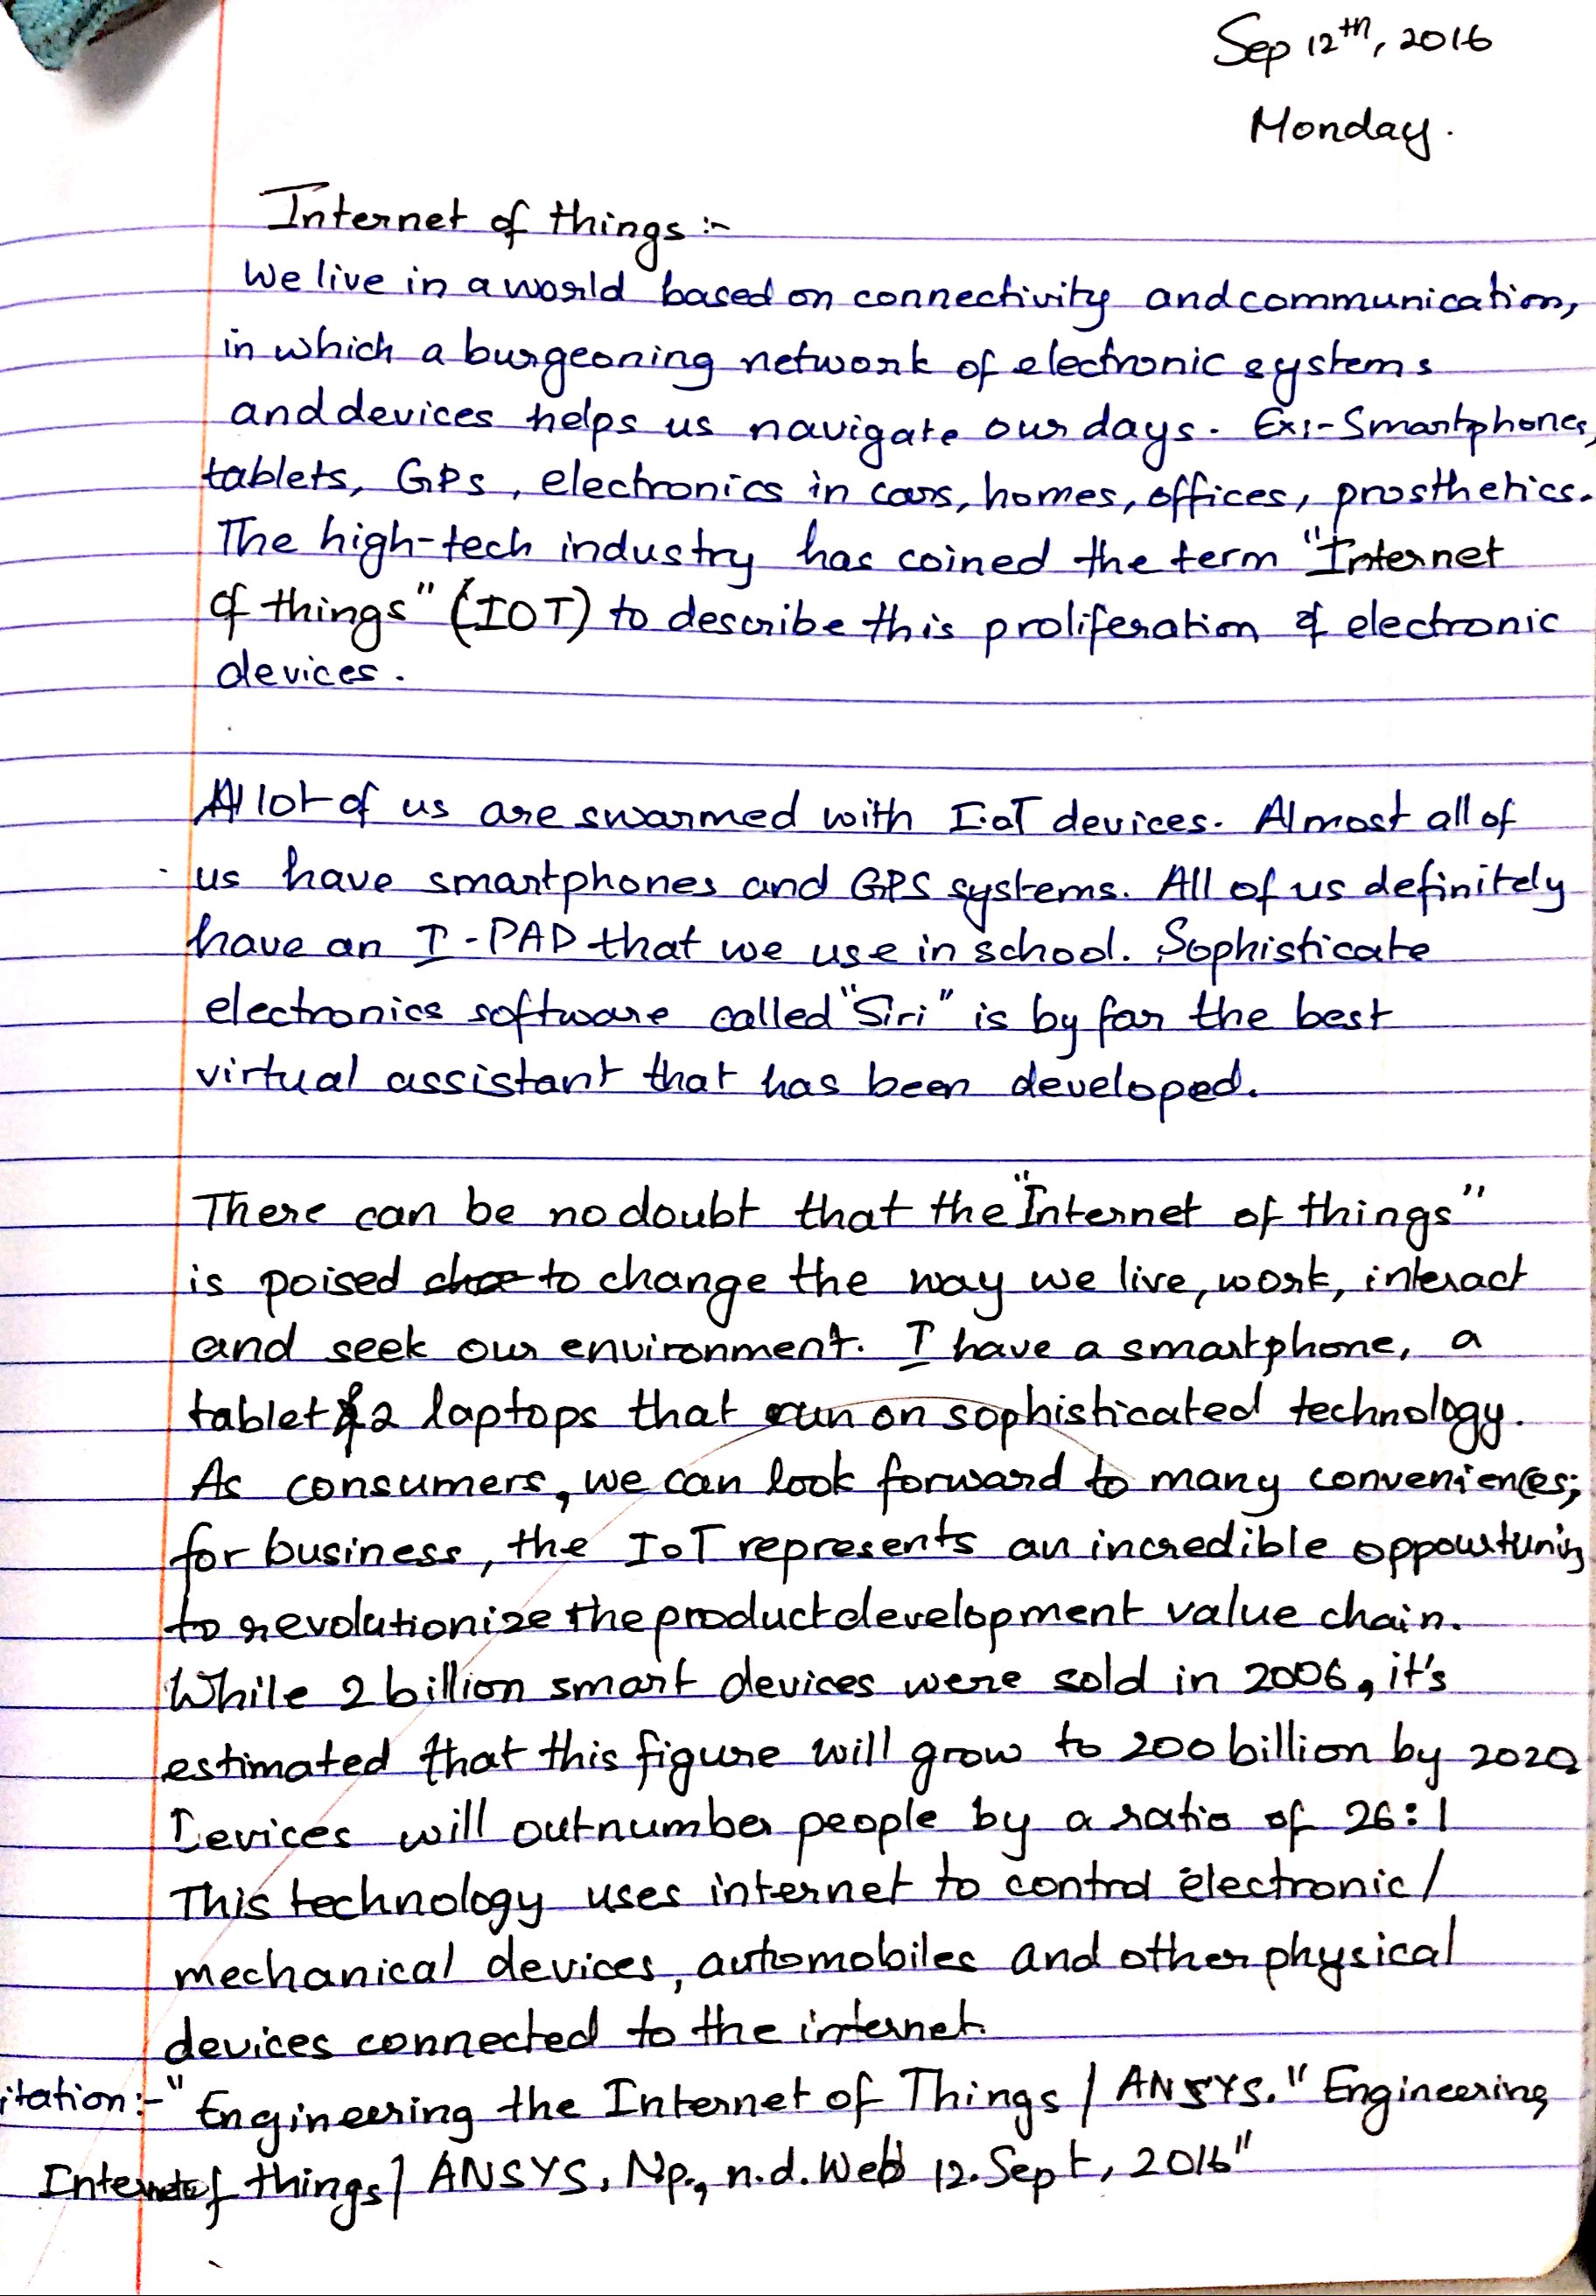 Sep 12th, 2016
Monday.
Internet of things :-
We live in a world based on connectivity and communication,
in which a burgeoning network of electronic systems
and devices helps us navigate our days. Ex:- Smartphones,
tablets, GPs, electronics in cars, homes, offices, prosthetics.
The high-tech industry has coined the term "Internet
of things" (IOT) to describe this proliferation of electronic
devices.
A lot of us are swarmed with IoT devices. Almost all of
us have smartphones and GPS systems. All of us definitely
have an I-PAD that we use in school. Sophisticate
electronics software called "Siri" is by far the best
virtual assistant that has been developed.
There can be no doubt that the "Internet of things"
is poised to change the way we live, work, interact
and seek our environment. I have a smartphone, a
tablet & 2 laptops that run on sophisticated technology.
As consumers, we can look forward to many conveniences;
for business, the IoT represents an incredible
to revolutionize the product development value chain.
While 2 billion smart devices were sold in 2006, it's
estimated that this figure will grow to 200 billion by 2020
Devices will outnumber people by a ratio of 26:1
This technology uses internet to control electronic/
mechanical devices, automobiles and other physical
devices connected to the internet.
itation:- "Engineering the Internet of Things | ANSYS." Engineering
Internet of things | ANSYS, Np., n.d. Web 12. Sept, 2016"